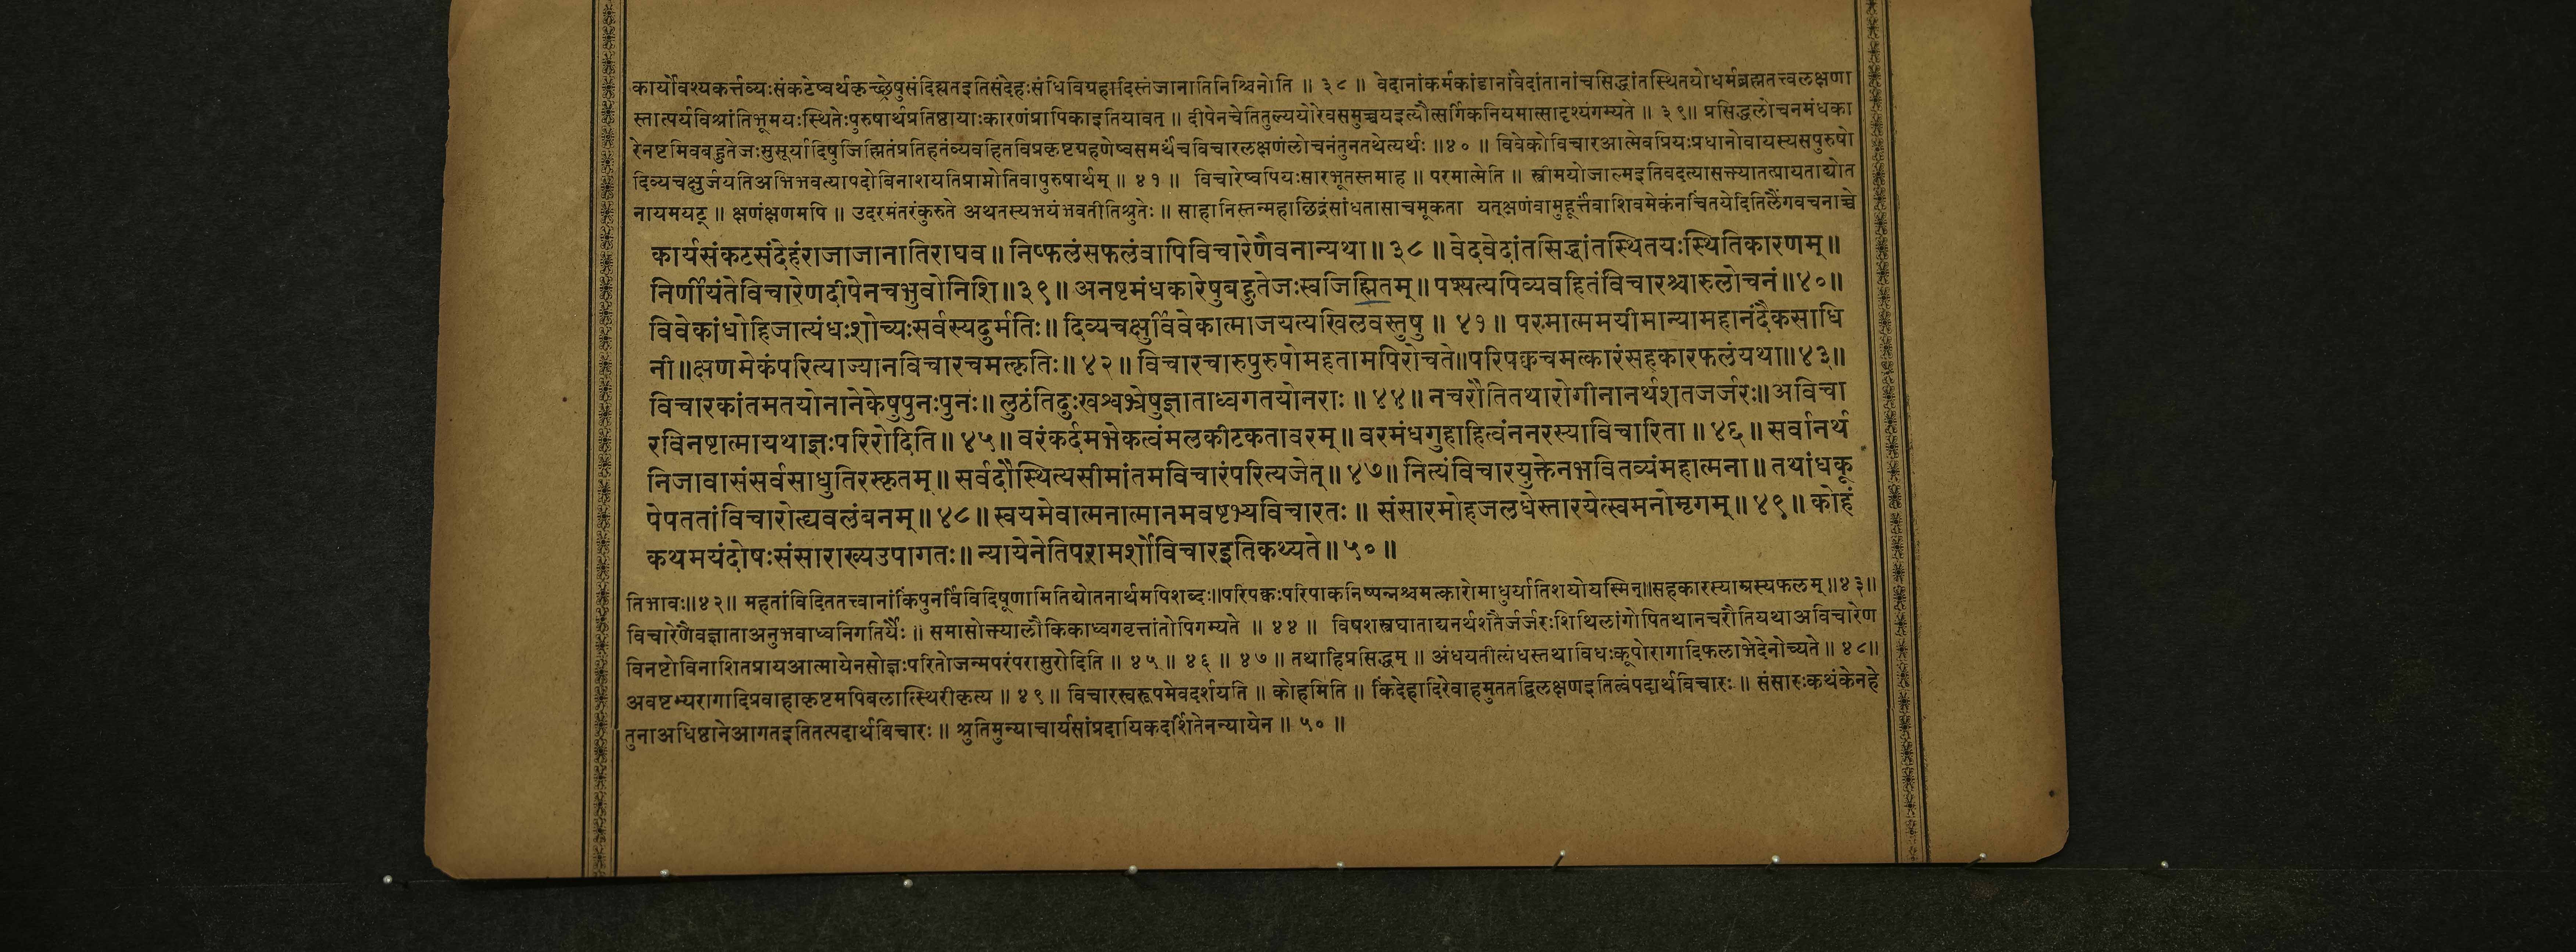 कार्योवश्यकर्त्तव्यःसंकटेष्वर्थकृच्छ्रेषुसंदिह्यतइतिसंदेहःसंधिविग्रहादिस्तंजानातिनिश्चिनोति ॥ ३८ ॥ वेदानांकर्मकांडानांवेदांतानांचसिद्धांतस्थितयोधर्मब्रह्मतत्त्वलक्षणा
स्तात्पर्यविश्रांतिभूमयःस्थितेःपुरुषार्थप्रतिष्ठायाःकारणंप्रापिकाइतियावत् ॥ दीपेनचेतितुल्ययोरेवसमुच्चयइत्यौत्सर्गिकनियमात्सादृश्यंगम्यते ॥ ३९॥ प्रसिद्धलोचनमंधका
रेनष्टमिवबहुतेजःसुसूर्यादिषुजिह्मितंप्रतिहतंव्यवहितविप्रकृष्टग्रहणेष्वसमर्थंचविचारलक्षणंलोचनंतुनतथेत्यर्थः ॥४० ॥ विवेकोविचारआत्मेवप्रियःप्रधानोवायस्यसपुरुषो
दिव्यचक्षुर्जयतिअभिभवत्यापदोविनाशयतिप्राप्नोतिवापुरुषार्थम् ॥ ४१ ॥ विचारेष्वपियःसारभूतस्तमाह ॥ परमात्मेति ॥ स्त्रीमयोजाल्मइतिवदत्यासक्त्यातत्प्रायताद्योत
नायमयट् ॥ क्षणंक्षणमपि ॥ उदरमंतरंकुरुते अथतस्यभयंभवतीतिश्रुतेः ॥ साहानिस्तन्महाछिद्रंसांधतासाचमूकता यत्क्षणंवामुहूर्त्तंवाशिवमेकंनचिंतयेदितिलैंगवचनाच्चे
कार्यसंकटसंदेहंराजाजानातिराघव॥ निष्फलंसफलंवापिविचारेणैवनान्यथा॥ ३८ ॥ वेदवेदांतसिद्धांतस्थितयःस्थितिकारणम्॥
निर्णीयंतेविचारेणदीपेनचभुवोनिशि॥३९॥ अनष्टमंधकारेषुबहुतेजःस्वजिह्मितम्॥ पश्यत्यपिव्यवहितंविचारश्चारुलोचनं॥४०॥
विवेकांधोहिजात्यंधःशोच्यःसर्वस्यदुर्मतिः॥ दिव्यचक्षुर्विवेकात्माजयत्यखिलवस्तुषु ॥ ४१॥ परमात्ममयीमान्यामहानंदैकसाधि
नी॥क्षणमेकंपरित्याज्यानविचारचमत्कृतिः॥ ४२॥ विचारचारुपुरुषोमहतामपिरोचते॥परिपक्वचमत्कारंसहकारफलंयथा॥४३॥
विचारकांतमतयोनानेकेषुपुनःपुनः॥ लुठंतिदुःखश्वभ्रेषुज्ञाताध्वगतयोनराः ॥ ४४॥ नचरौतितथारोगीनानर्थशतजर्जरः॥अविचा
रविनष्टात्मायथाज्ञःपरिरोदिति॥ ४५॥ वरंकर्दमभेकत्वंमलकीटकतावरम्॥ वरमंधगुहाहित्वंननरस्याविचारिता ॥ ४६॥ सर्वानर्थ
निजावासंसर्वसाधुतिरस्कृतम्॥ सर्वदौस्थित्यसीमांतमविचारंपरित्यजेत्॥ ४७॥ नित्यंविचारयुक्तेनभवितव्यंमहात्मना॥ तथांधकू
पेपततांविचारोह्यवलंबनम्॥४८॥ स्वयमेवात्मनात्मानमवष्टभ्यविचारतः ॥ संसारमोहजलधेस्तारयेत्स्वमनोमृगम्॥ ४९॥ कोहं
कथमयंदोषःसंसाराख्यउपागतः॥ न्यायेनेतिपरामर्शोविचारइतिकथ्यते॥५०॥
तिभावः॥४२॥ महतांविदिततत्त्वानांकिंपुनर्विविदिषूणामितिद्योतनार्थमपिशब्दः॥परिपक्वःपरिपाकनिष्पन्नश्चमत्कारोमाधुर्यातिशयोयस्मिन्॥सहकारस्याम्रस्यफलम्॥४३॥
विचारेणैवज्ञाताअनुभवाध्वनिगतिर्यैः ॥ समासोक्त्यालौकिकाध्वगवृत्तांतोपिगम्यते ॥ ४४ ॥ विषशस्त्रघाताद्यनर्थशतैर्जर्जरःशिथिलांगोपितथानचरौतियथाअविचारेण
विनष्टोविनाशितप्रायआत्मायेनसोज्ञःपरितोजन्मपरंपरासुरोदिति ॥ ४५ ॥ ४६ ॥ ४७ ॥ तथाहिप्रसिद्धम् ॥ अंधयतीत्यंधस्तथाविधःकूपोरागादिफलाभेदेनोच्यते ॥ ४८॥
अवष्टभ्यरागादिप्रवाहाकृष्टमपिबलात्स्थिरीकृत्य ॥ ४९॥ विचारस्वरूपमेवदर्शयति ॥ कोहमिति ॥ किंदेहादिरेवाहमुततद्विलक्षणइतित्वंपदार्थविचारः ॥ संसारःकथंकेनहे
तुनाअधिष्ठानेआगतइतितत्पदार्थविचारः ॥ श्रुतिमुन्याचार्यसांप्रदायिकदर्शितेनन्यायेन ॥ ५० ॥